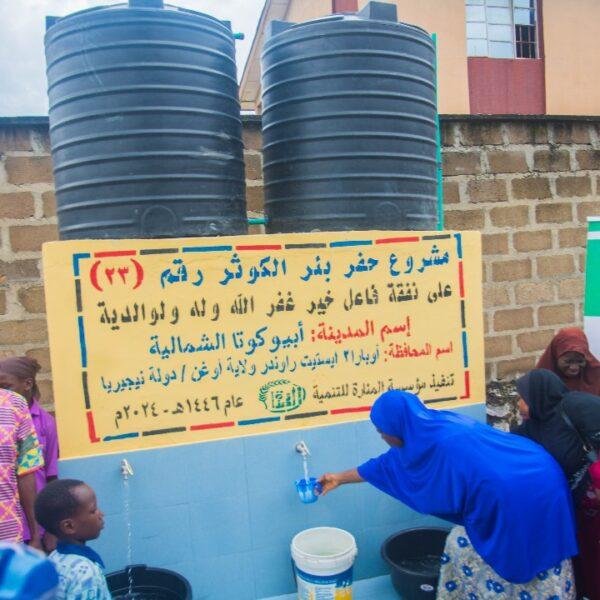 مشروع حفر بئر الكوثر رقم (٢٣)
على نفقة فاعل خير غفر الله وله ولوالدية
إسم المدينة: أبيوكوتا الشمالية
اسم المحافظة: أوبارا٢ ايستيت راوندر ولاية أوغن / دولة نيجيريا
تنفيذ مؤسسة المنارة للتنمية
عام ١٤٤٦هـ - ٢٠٢٤م